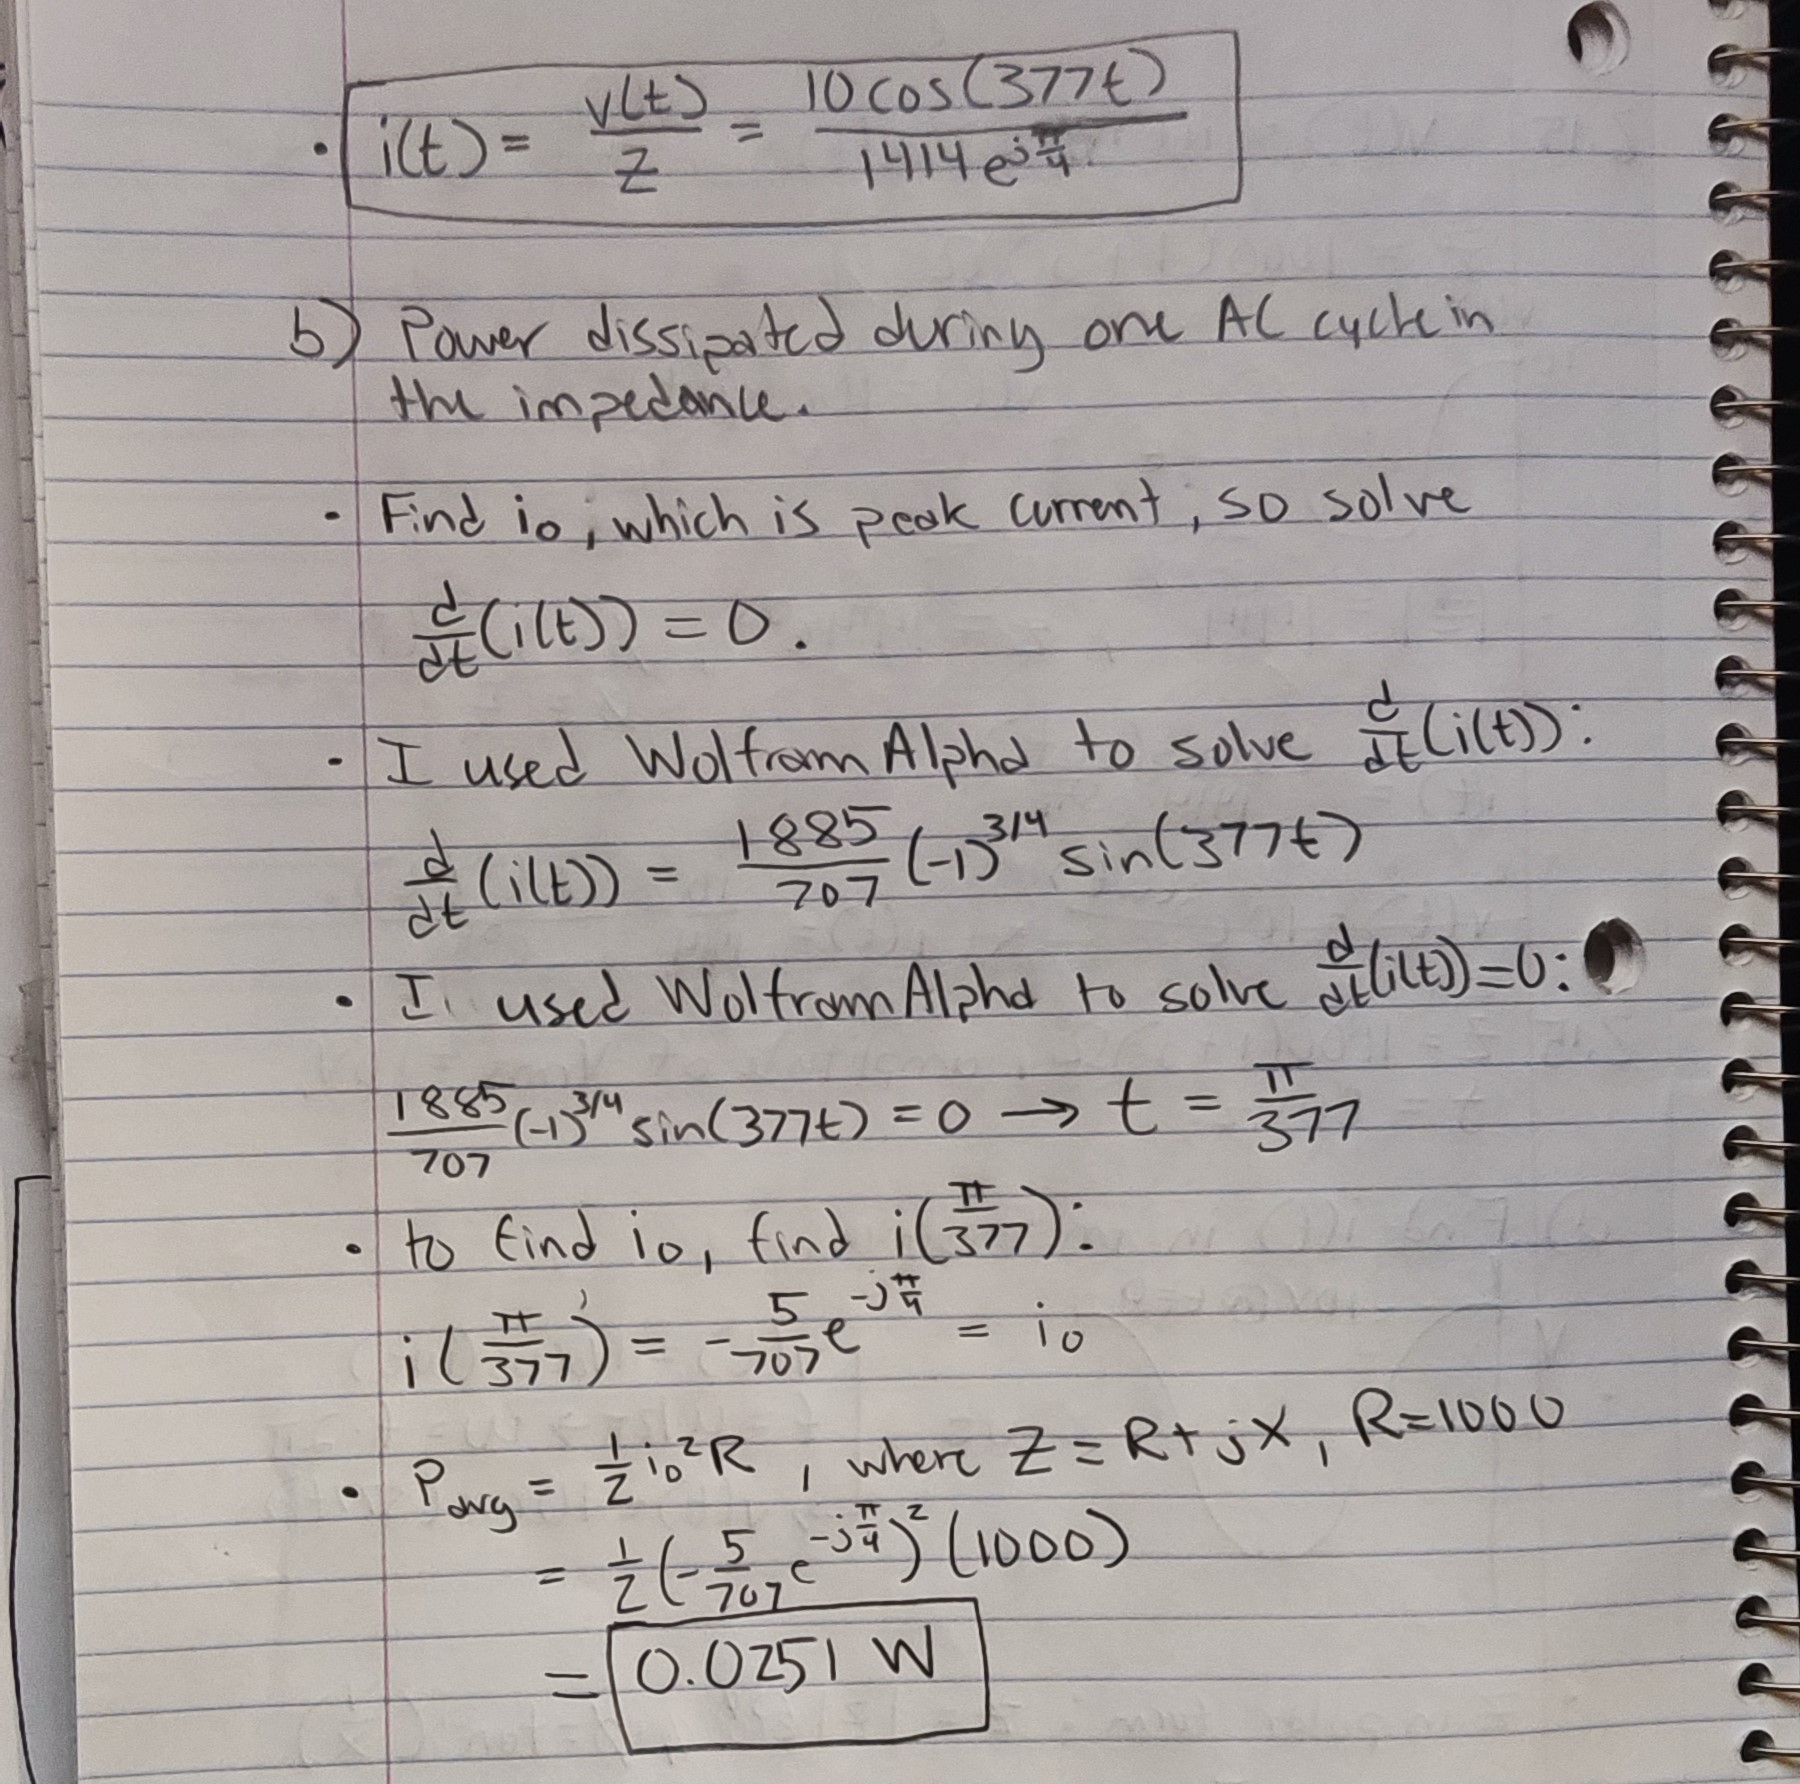 • i(t) = v(t)/Z = 10 cos(377t)/1414 e^(j π/4)
b) Power dissipated during one AC cycle in
the impedance.
• Find i₀, which is peak current, so solve
d/dt (i(t)) = 0.
• I used WolframAlpha to solve d/dt (i(t)):
d/dt (i(t)) = 1885/707 (-1)^(3/4) sin(377t)
• I used WolframAlpha to solve d/dt (i(t)) = 0:
1885/707 (-1)^(3/4) sin(377t) = 0 → t = π/377
• to find i₀, find i(π/377):
i(π/377) = -5/707 e^(-j π/4) = i₀
• P_avg = 1/2 i₀² R, where Z = R + jX, R = 1000
= 1/2 (-5/707 e^(-j π/4))² (1000)
= 0.0251 W